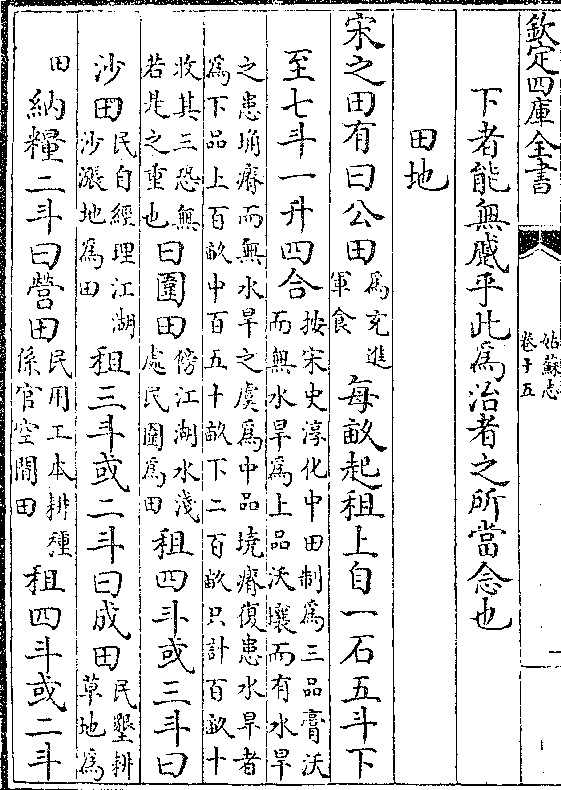 欽定四庫全書
姑蘇志
卷十五
一
下者能無慼乎此為治者之所當念也
田地
宋之田有曰公田為充進軍食每畝起租上自一石五斗下
至七斗一升四合按宋史淳化中田制為三品膏沃而無水旱為上品沃壤而有水旱
之患埆瘠而無水旱之虞為中品境瘠復患水旱者為下品上百畝中百五十畝下二百畝只計百畝十
收其三恐無若是之重也曰圍田傍江湖水淺處民圍為田租四斗或三斗曰
沙田民自經理江湖沙漲地為田租三斗或二斗曰成田民墾耕草地為
田納糧二斗曰營田民用工本耕種係官空閒田租四斗或二斗